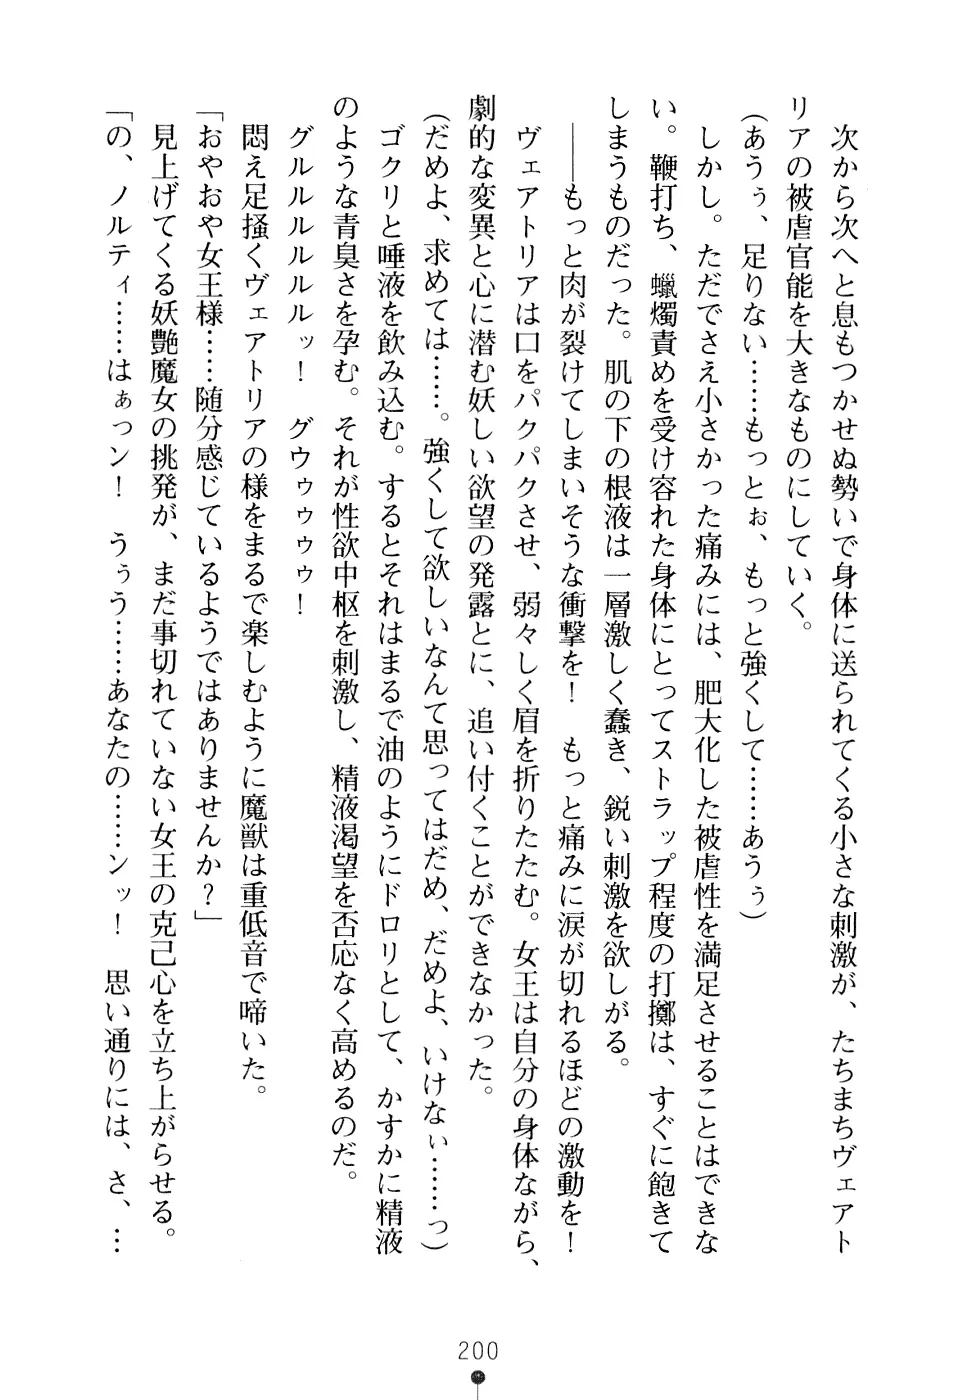 次から次へと息もつかせぬ勢いで身体に送られてくる小さな刺激が、たちまちヴェアト
リアの被虐官能を大きなものにしていく。
(あうぅ、足りない……もっとぉ、もっと強くして……あうぅ)
しかし。ただでさえ小さかった痛みには、肥大化した被虐性を満足させることはできな
い。鞭打ち、蠟燭責めを受け容れた身体にとってストラップ程度の打擲は、すぐに飽きて
しまうものだった。肌の下の根液は一層激しく蠢き、鋭い刺激を欲しがる。
――もっと肉が裂けてしまいそうな衝撃を！　もっと痛みに涙が切れるほどの激動を！
ヴェアトリアは口をパクパクさせ、弱々しく眉を折りたたむ。女王は自分の身体ながら、
劇的な変異と心に潜む妖しい欲望の発露とに、追い付くことができなかった。
(だめよ、求めては……。強くして欲しいなんて思ってはだめ、だめよ、いけないぃ……っ)
ゴクリと唾液を飲み込む。するとそれはまるで油のようにドロリとして、かすかに精液
のような青臭さを孕む。それが性欲中枢を刺激し、精液渇望を否応なく高めるのだ。
グルルルルルルッ！　グウゥゥゥゥ！
悶え足掻くヴェアトリアの様をまるで楽しむように魔獣は重低音で啼いた。
「おやおや女王様……随分感じているようではありませんか？」
見上げてくる妖艶魔女の挑発が、まだ事切れていない女王の克己心を立ち上がらせる。
「の、ノルティ……はぁっン！　うぅう……あなたの……ンッ！　思い通りには、さ、…
200